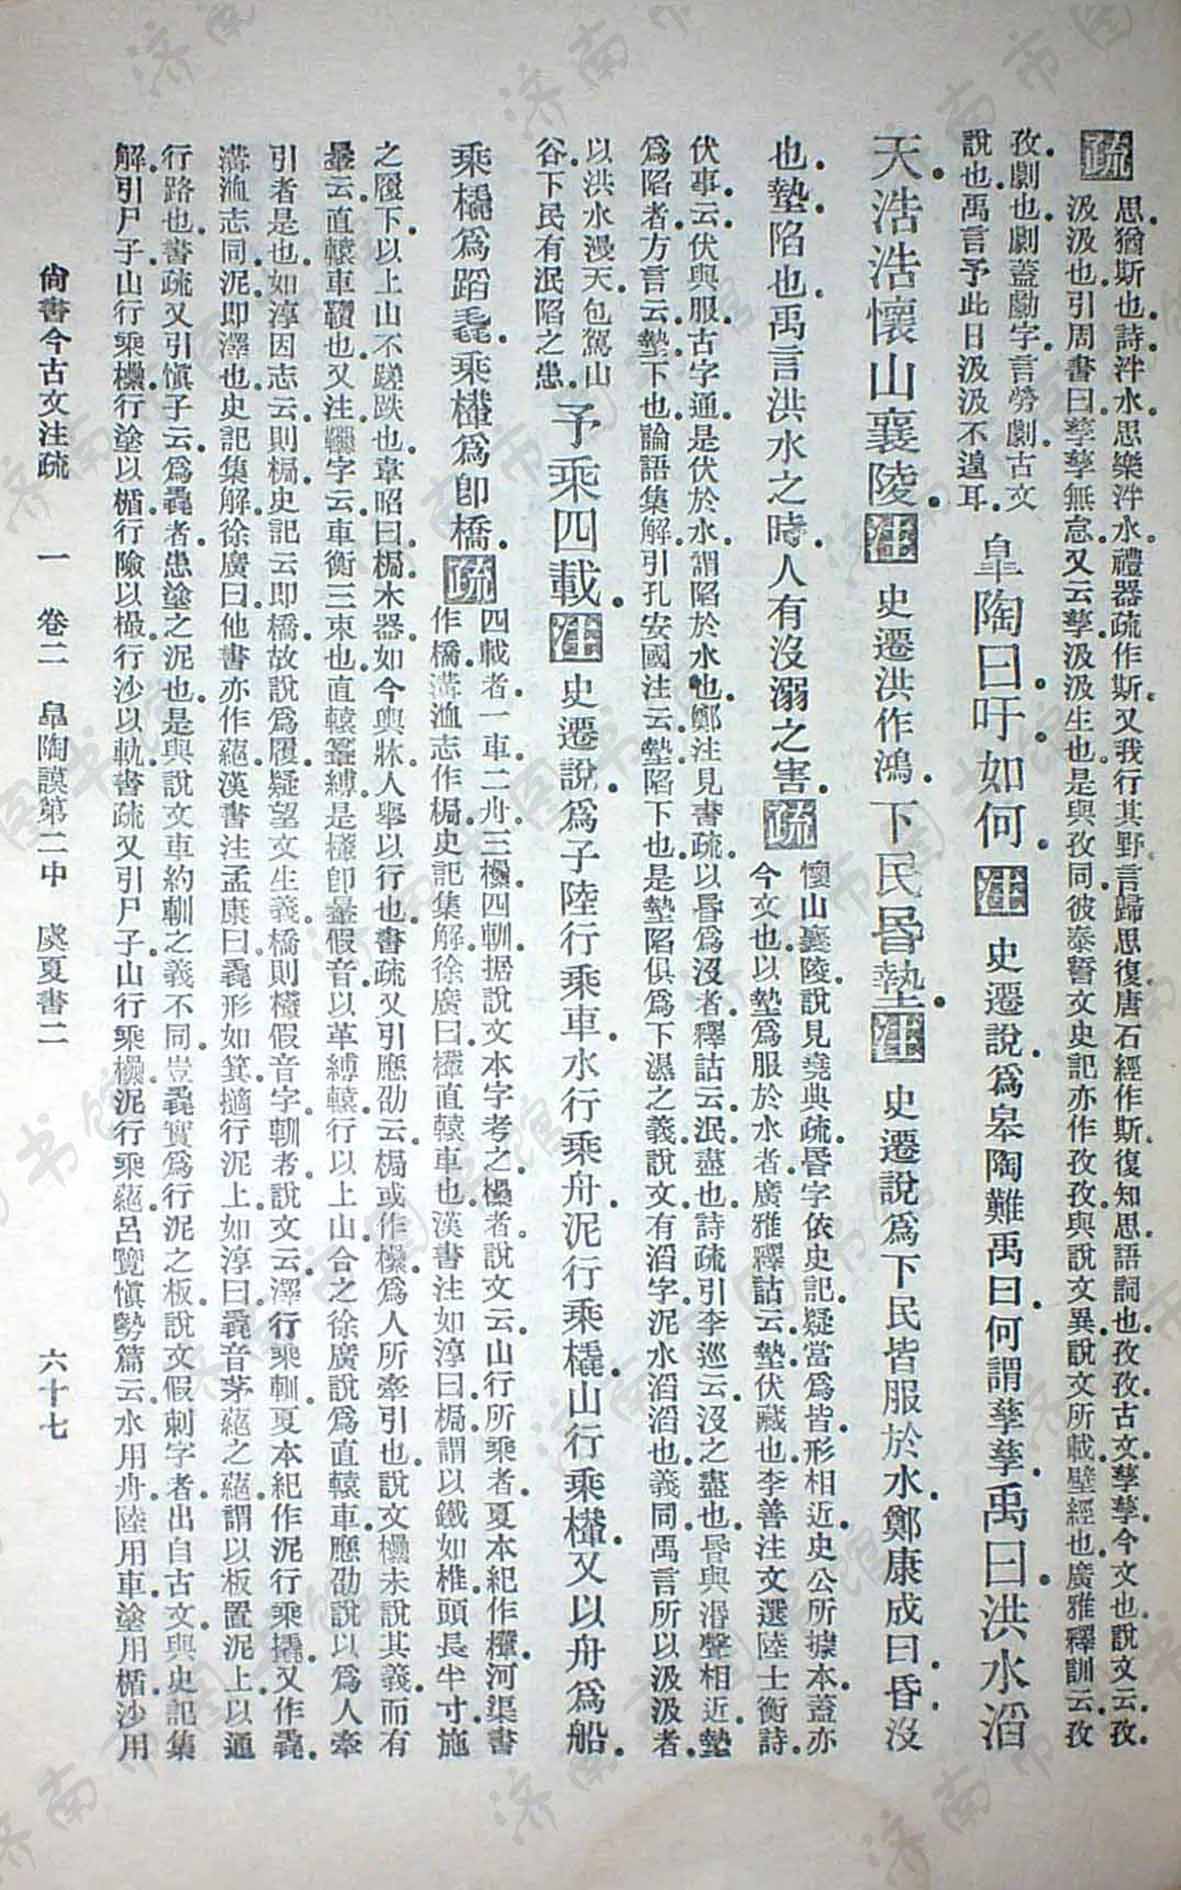 疏 思猶斯也。詩泮水思樂泮水。禮器疏作斯。又我行其野言歸思復。唐石經作斯復。知思語詞也。孜孜古文。孳孳今文也。說文云。孜。
汲汲也。引周書曰。孳孳無怠。又云孳。汲汲生也。是與孜同。彼泰誓文。史記亦作孜孜。與說文異。說文所載。壁經也。廣雅釋訓云。孜
孜。劇也。劇蓋勮字。言勞劇。古文
說也。禹言予此日汲汲不遑耳。
皐陶曰。吁。如何。注 史遷說爲皋陶難禹曰。何謂孳孳。禹曰。洪水滔
天。浩浩懷山襄陵。注 史遷洪作鴻。下民昬墊。注 史遷說爲下民皆服於水。鄭康成曰。昏。沒
也。墊。陷也。禹言洪水之時。人有沒溺之害。疏 懷山襄陵。說見堯典疏。昬字依史記。疑當爲皆。形相近。史公所據本。蓋亦
今文也。以墊爲服於水者。廣雅釋詁云。墊。伏藏也。李善注文選陸士衡詩。
伏事。云伏與服。古字通。是伏於水。謂陷於水也。鄭注見書疏。以昬爲沒者。釋詁云。泯。盡也。詩疏引李巡云。沒之盡也。昬與湣聲相近。墊
爲陷者。方言云。墊。下也。論語集解。引孔安國注云。墊。陷下也。是墊陷俱爲下濕之義。說文有滔字。泥水滔滔也。義同。禹言所以汲汲者。
以洪水漫天。包駕山
谷。下民有泯陷之患。
予乘四載。注 史遷說。爲予陸行乘車。水行乘舟。泥行乘橇。山行乘檋。又以舟爲船。
乘橇爲蹈毳。乘檋爲卽橋。疏 四載者。一車二舟三欙四輴。据說文本字考之。欙者。說文云。山行所乘者。夏本紀作檋。河渠書
作橋。溝洫志作梮。史記集解。徐廣曰。檋。直轅車也。漢書注。如淳曰。梮。謂以鐵如椎頭。長半寸。施
之履下。以上山不蹉跌也。韋昭曰。梮。木器。如今輿牀。人舉以行也。書疏又引應劭云。梮或作欙。爲人所牽引也。說文欙未說其義。而有
暈云。直轅車鞼也。又注䡅字云。車衡三束也。直轅暈縛。是檋卽暈假音。以革縛轅。行以上山。合之徐廣說爲直轅車。應劭說以爲人牽
引者是也。如淳因志云則梮。史記云卽橋。故說爲履。疑望文生義。橋則檋假音字。輴者。說文云。澤行乘輴。夏本紀作泥行乘撬。又作毳。
溝洫志同。泥。即澤也。史記集解。徐廣曰。他書亦作蕝。漢書注。孟康曰。毳形如箕。擿行泥上。如淳曰。毳音茅蕝之蕝。謂以板置泥上。以通
行路也。書疏又引愼子云。爲毳者。患塗之泥也。是與說文車約輴之義不同。豈毳實爲行泥之板。說文假剌字者。出自古文。與史記集
解。引尸子。山行乘欙。行塗以楯。行險以樶。行沙以軌。書疏又引尸子。山行乘欙。泥行乘蕝。呂覽愼勢篇云。水用舟。陸用車。塗用楯。沙用
尙書今古文注疏　一　卷二　皐陶謨第二中　虞夏書二　六十七